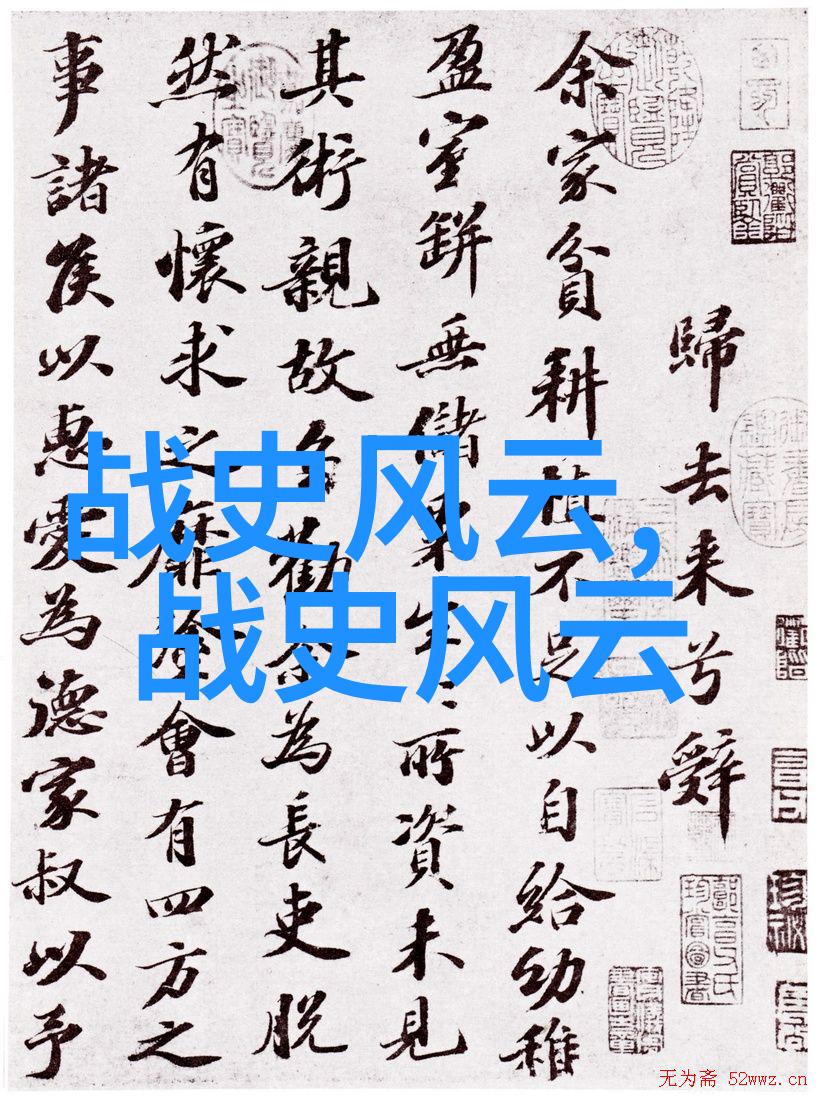 歸去来兮辭
余家貧耕植不足以自給幼稚
盈室缾無儲粟生々所資未見
其術親故多勸余為長吏脱
然有懷求之靡途會有四方之
事諸侯以惠愛為德家叔以予
战史风云，
战史风云
无为斋 52wwz.cn